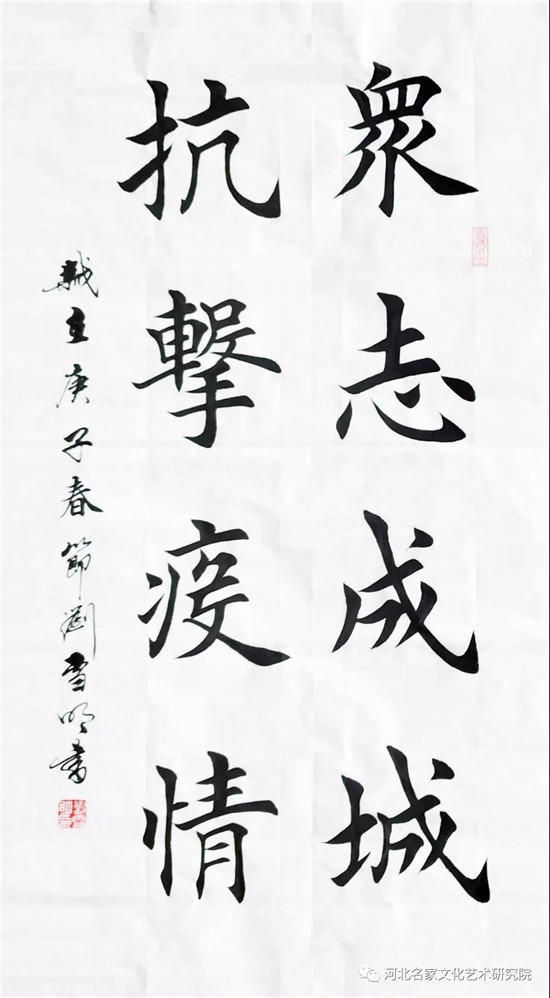 衆志成城
抗擊疫情
庚子春節劉雪明書
河北名家文化艺术研究院